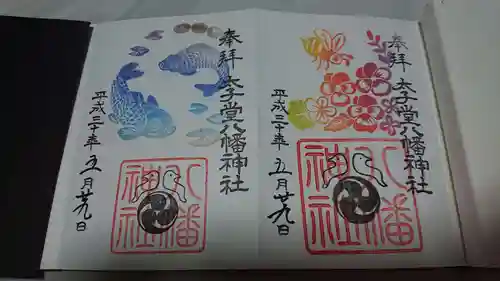 奉拝
太子堂八幡神社
平成三十年五月廿九日
八幡
神社
奉拝
太子堂八幡神社
平成三十年五月廿九日
八幡
神社